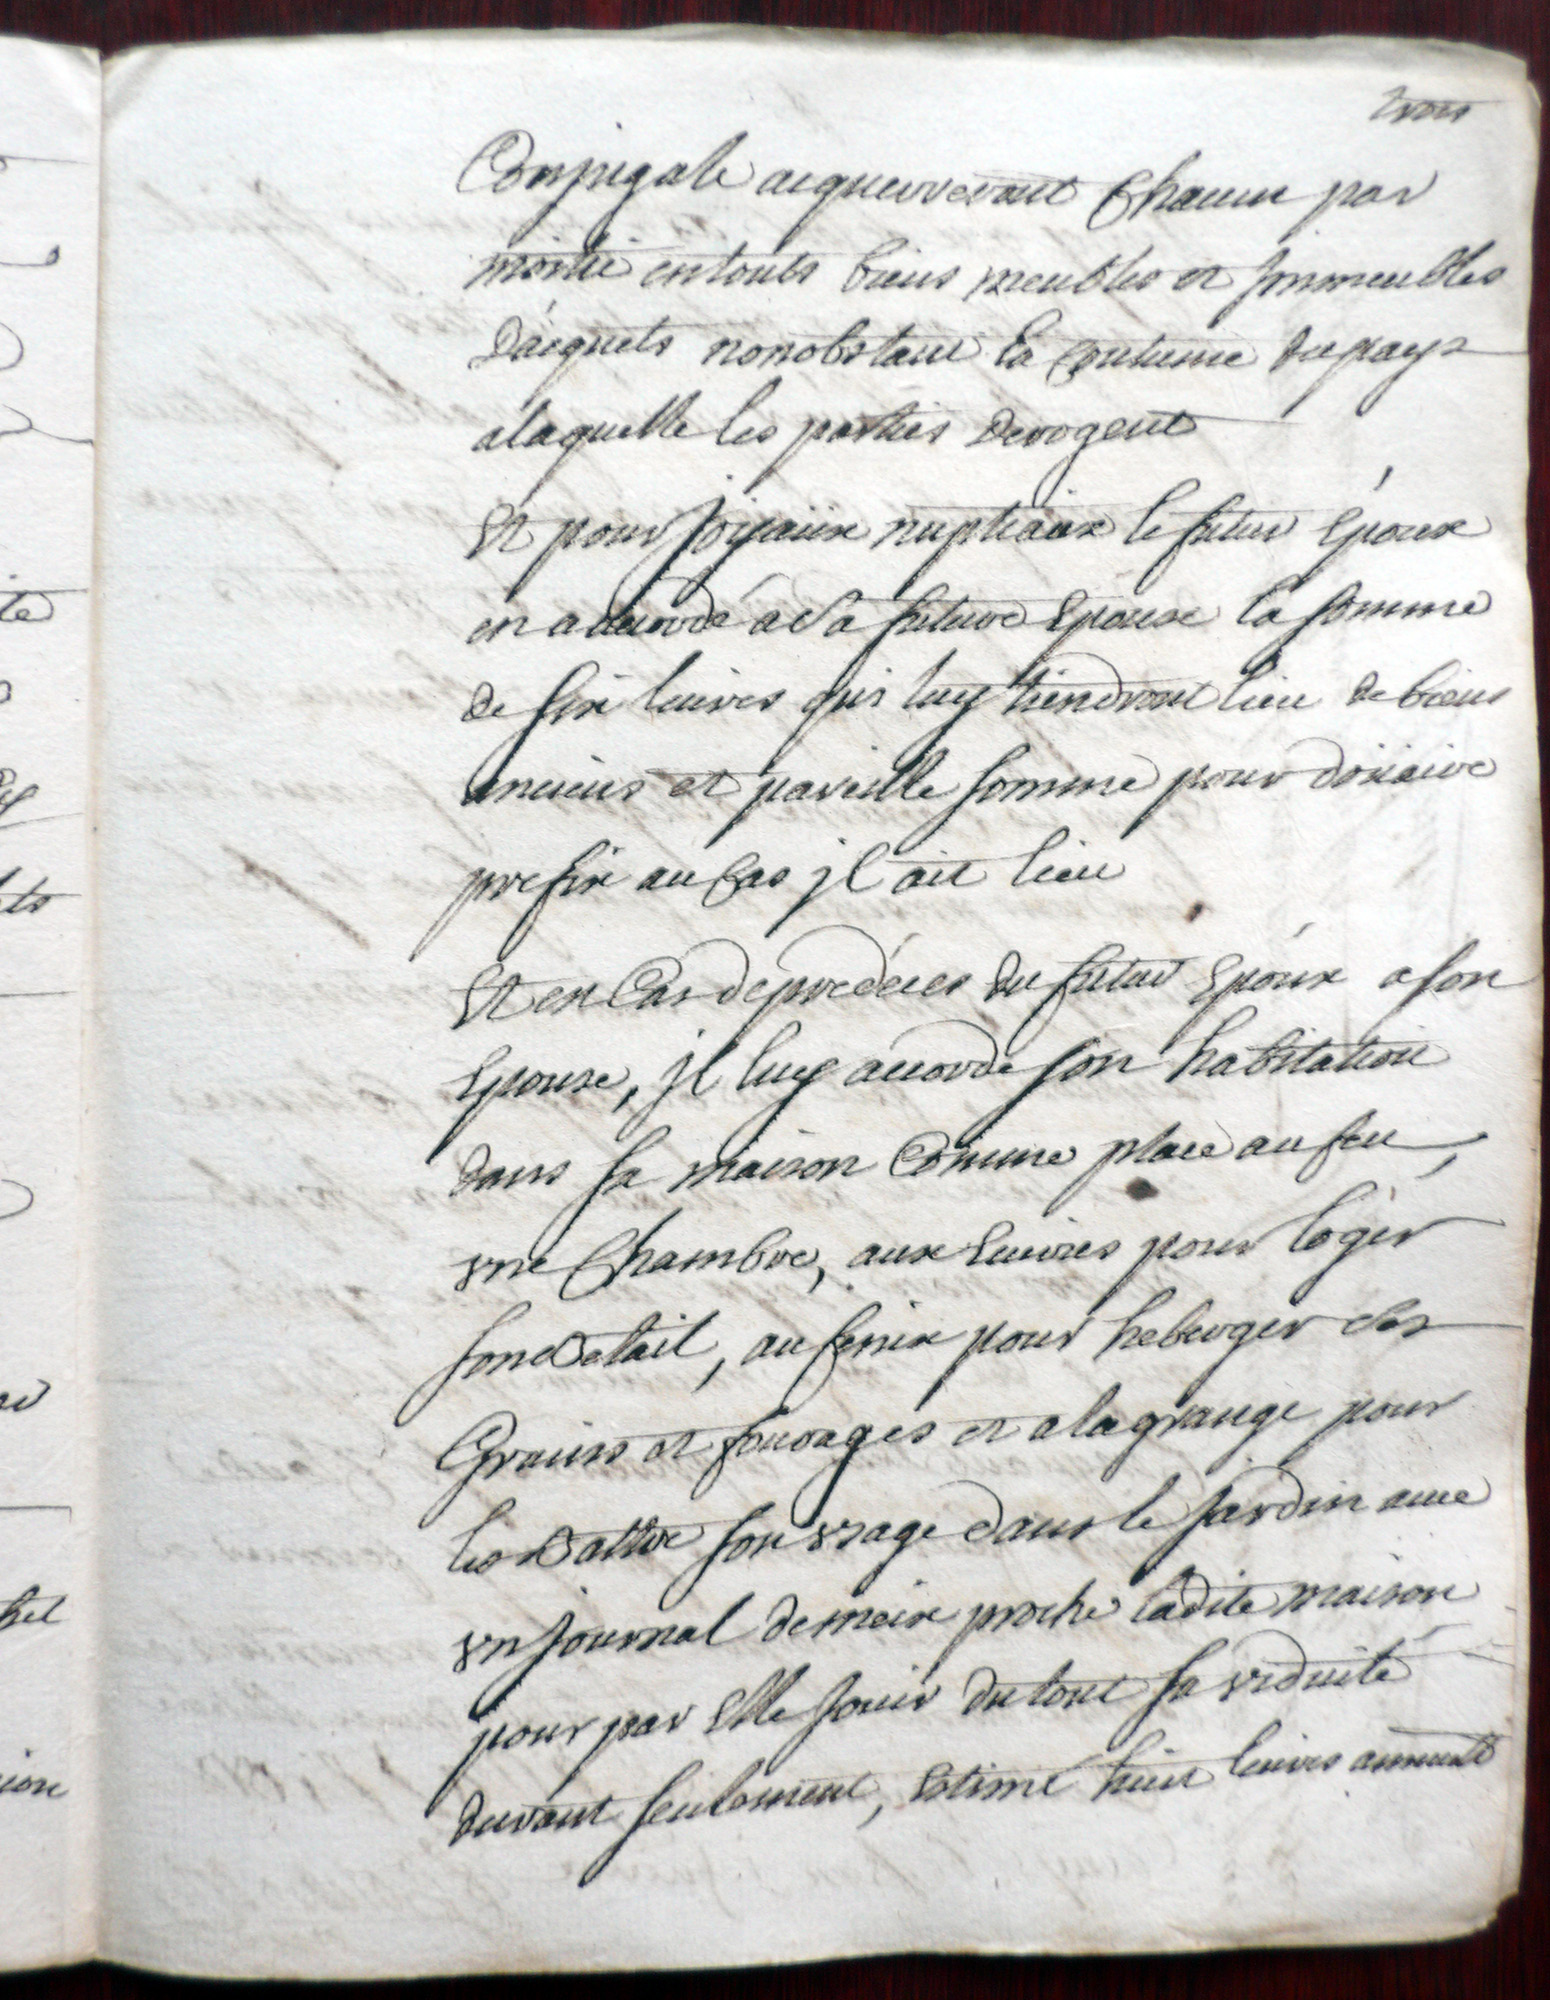 trois
Conjugale acquerreront Chacun par
moitié en touts biens meubles et jmmeubles
d'acquets nonobstant la Coutume du pays
a laquelle les parties derogent
Et pour joyaüx nuptiaux le futur Epoux
en accordé a Sa future Epouse la somme
de six livres qui luy tiendront lieu de biens
anciens et pareille somme pour doüaire
prefix au Cas jl ait lieu
Et en Cas de predécès du futur Epoux a son
Epouse, jl luy accorde son habitation
dans sa maison Comme place au feu,
vne Chambre, aux Ecuries pour loger
son Betail, au fenix pour heberger ses
Grains et fourages et a la grange pour
les Battre son vsage dans le jardin avec
vn journal de meix proche ladite maison
pour par Elle jouir du tout sa viduité
durant seulement, Estimé huit livres annuelt